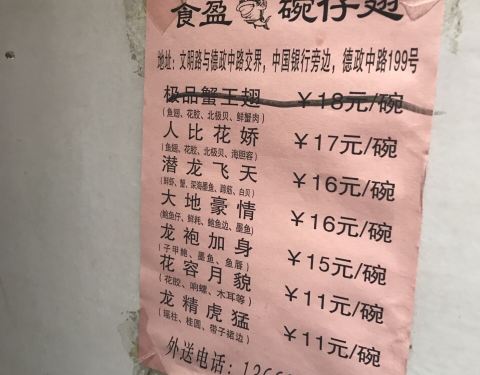 食盈 碗仔翅
地址：文明路与德政中路交界，中国银行旁边，德政中路199号
极品蟹王翅 ￥18元/碗
（鱼翅、花胶、北极贝、鲜蟹肉）
人比花娇 ￥17元/碗
（鱼翅、花胶、北极贝、海胆容）
潜龙飞天 ￥16元/碗
（鲜虾、蟹、深海墨鱼、蹄筋、白贝）
大地豪情 ￥16元/碗
（鲍鱼仔、鲜耗、鲍鱼边、墨鱼）
龙袍加身 ￥15元/碗
（子甲鲍、墨鱼、鱼唇）
花容月貌 ￥11元/碗
（花胶、响螺、木耳等）
龙精虎猛 ￥11元/碗
（瑶柱、桂圆、带子裙边）
外送电话：